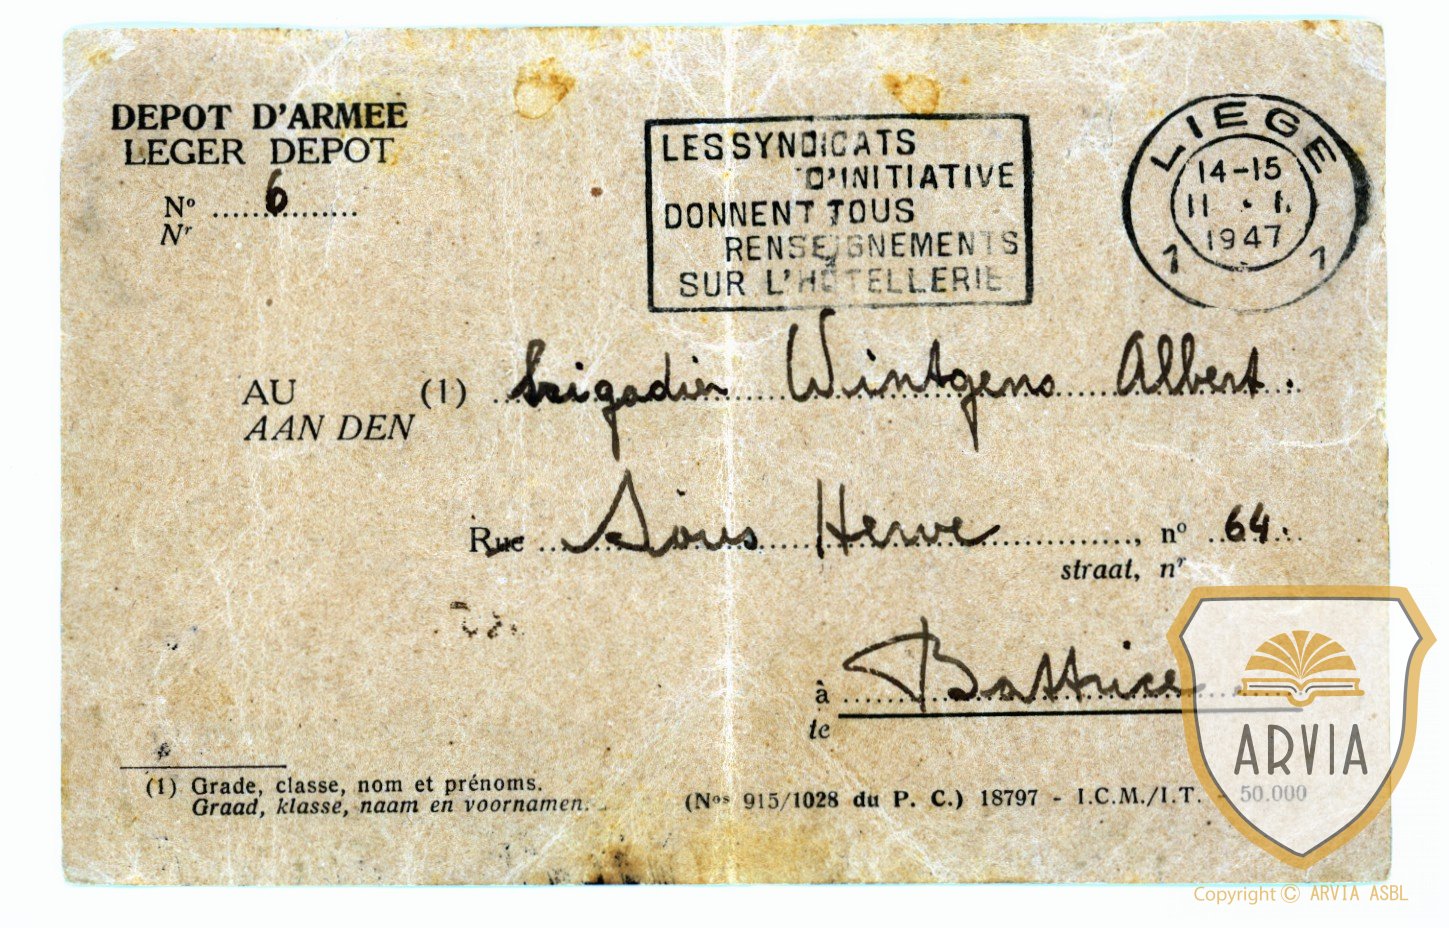 DEPOT D'ARMEE
LEGER DEPOT
Nº ...6...
Nr
LES SYNDICATS
D'INITIATIVE
DONNENT TOUS
RENSEIGNEMENTS
SUR L'HÔTELLERIE
LIEGE
14-15
11 . 1.
1947
1 1
AU (1) brigadier Wintgens Albert.
AAN DEN
Rue Sous Herve, nº 64.
straat, nr
à Battice
te
(1) Grade, classe, nom et prénoms.
Graad, klasse, naam en voornamen.
(Nos 915/1028 du P. C.) 18797 - I.C.M./I.T. - 50.000
ARVIA
Copyright © ARVIA ASBL